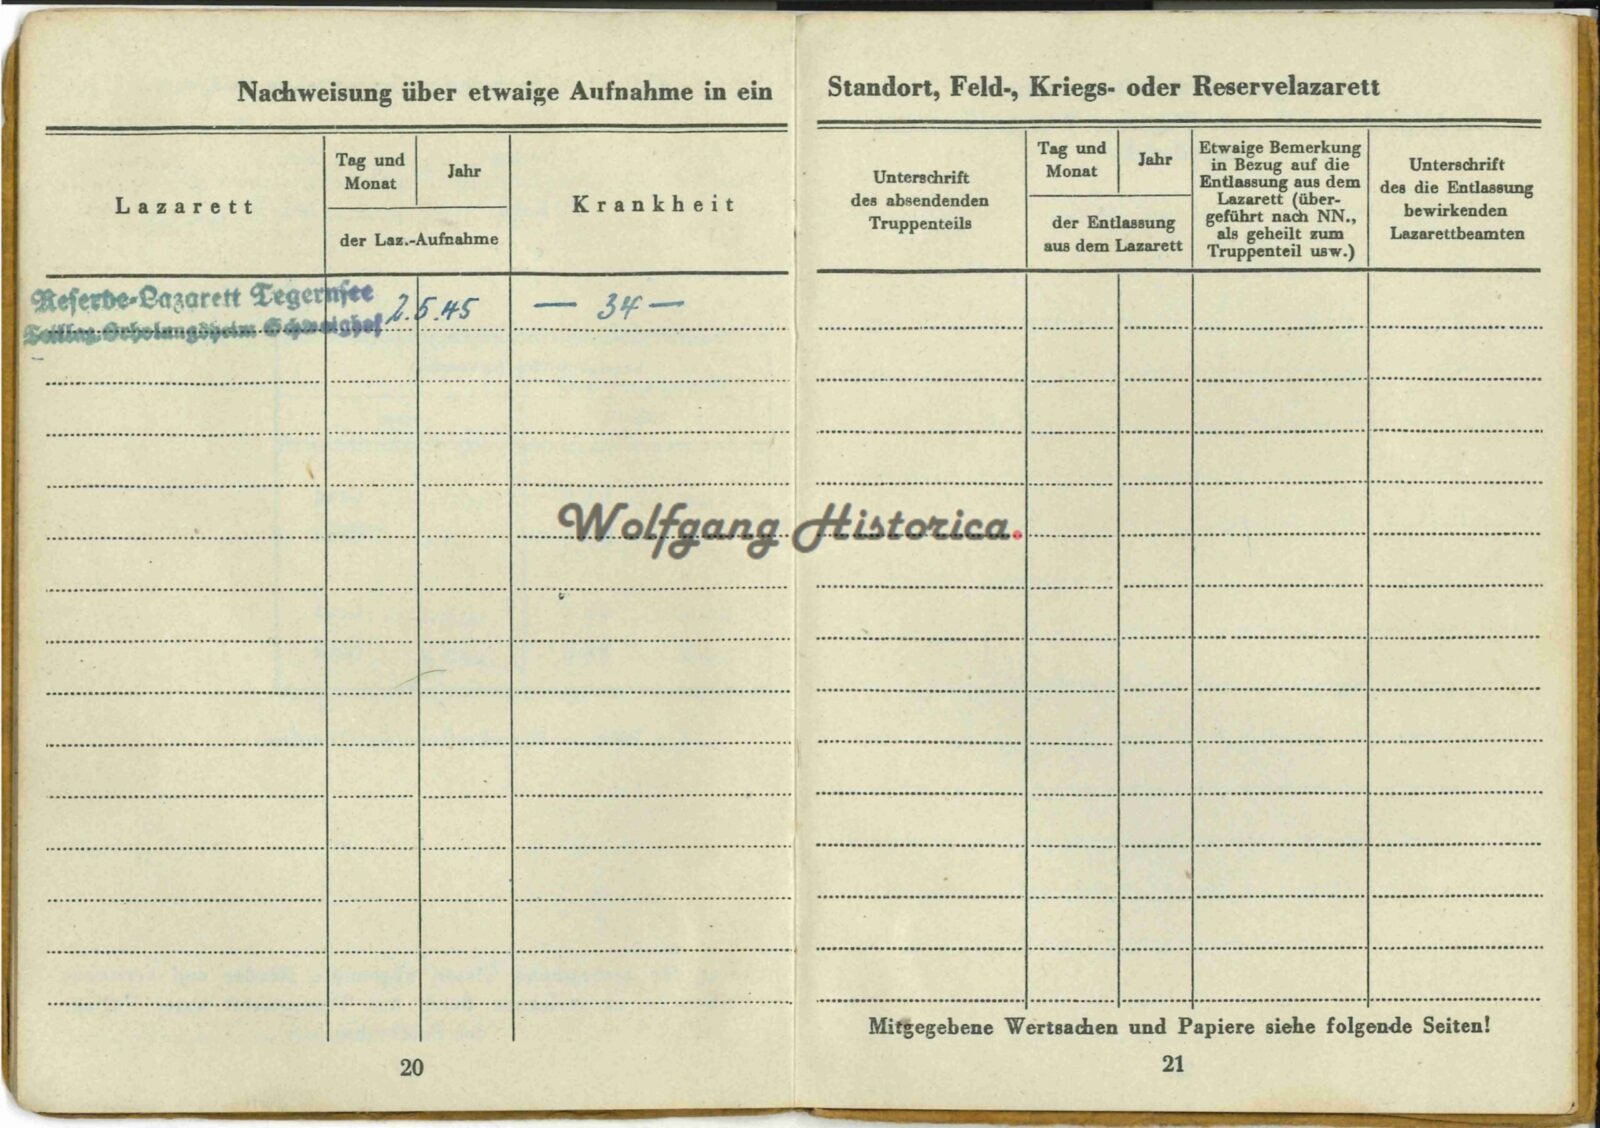 Nachweisung über etwaige Aufnahme in ein
Lazarett
Tag und Monat
Jahr
der Laz.-Aufnahme
Krankheit
Reserve-Lazarett Tegernsee
Teillaz. Erholungsheim Schwaighof
2.5.45
— 34 —
20
Standort, Feld-, Kriegs- oder Reservelazarett
Unterschrift
des absendenden
Truppenteils
Tag und
Monat
Jahr
der Entlassung
aus dem Lazarett
Etwaige Bemerkung
in Bezug auf die
Entlassung aus dem
Lazarett (über-
geführt nach NN.,
als geheilt zum
Truppenteil usw.)
Unterschrift
des die Entlassung
bewirkenden
Lazarettbeamten
Mitgegebene Wertsachen und Papiere siehe folgende Seiten!
21
Wolfgang Historica.